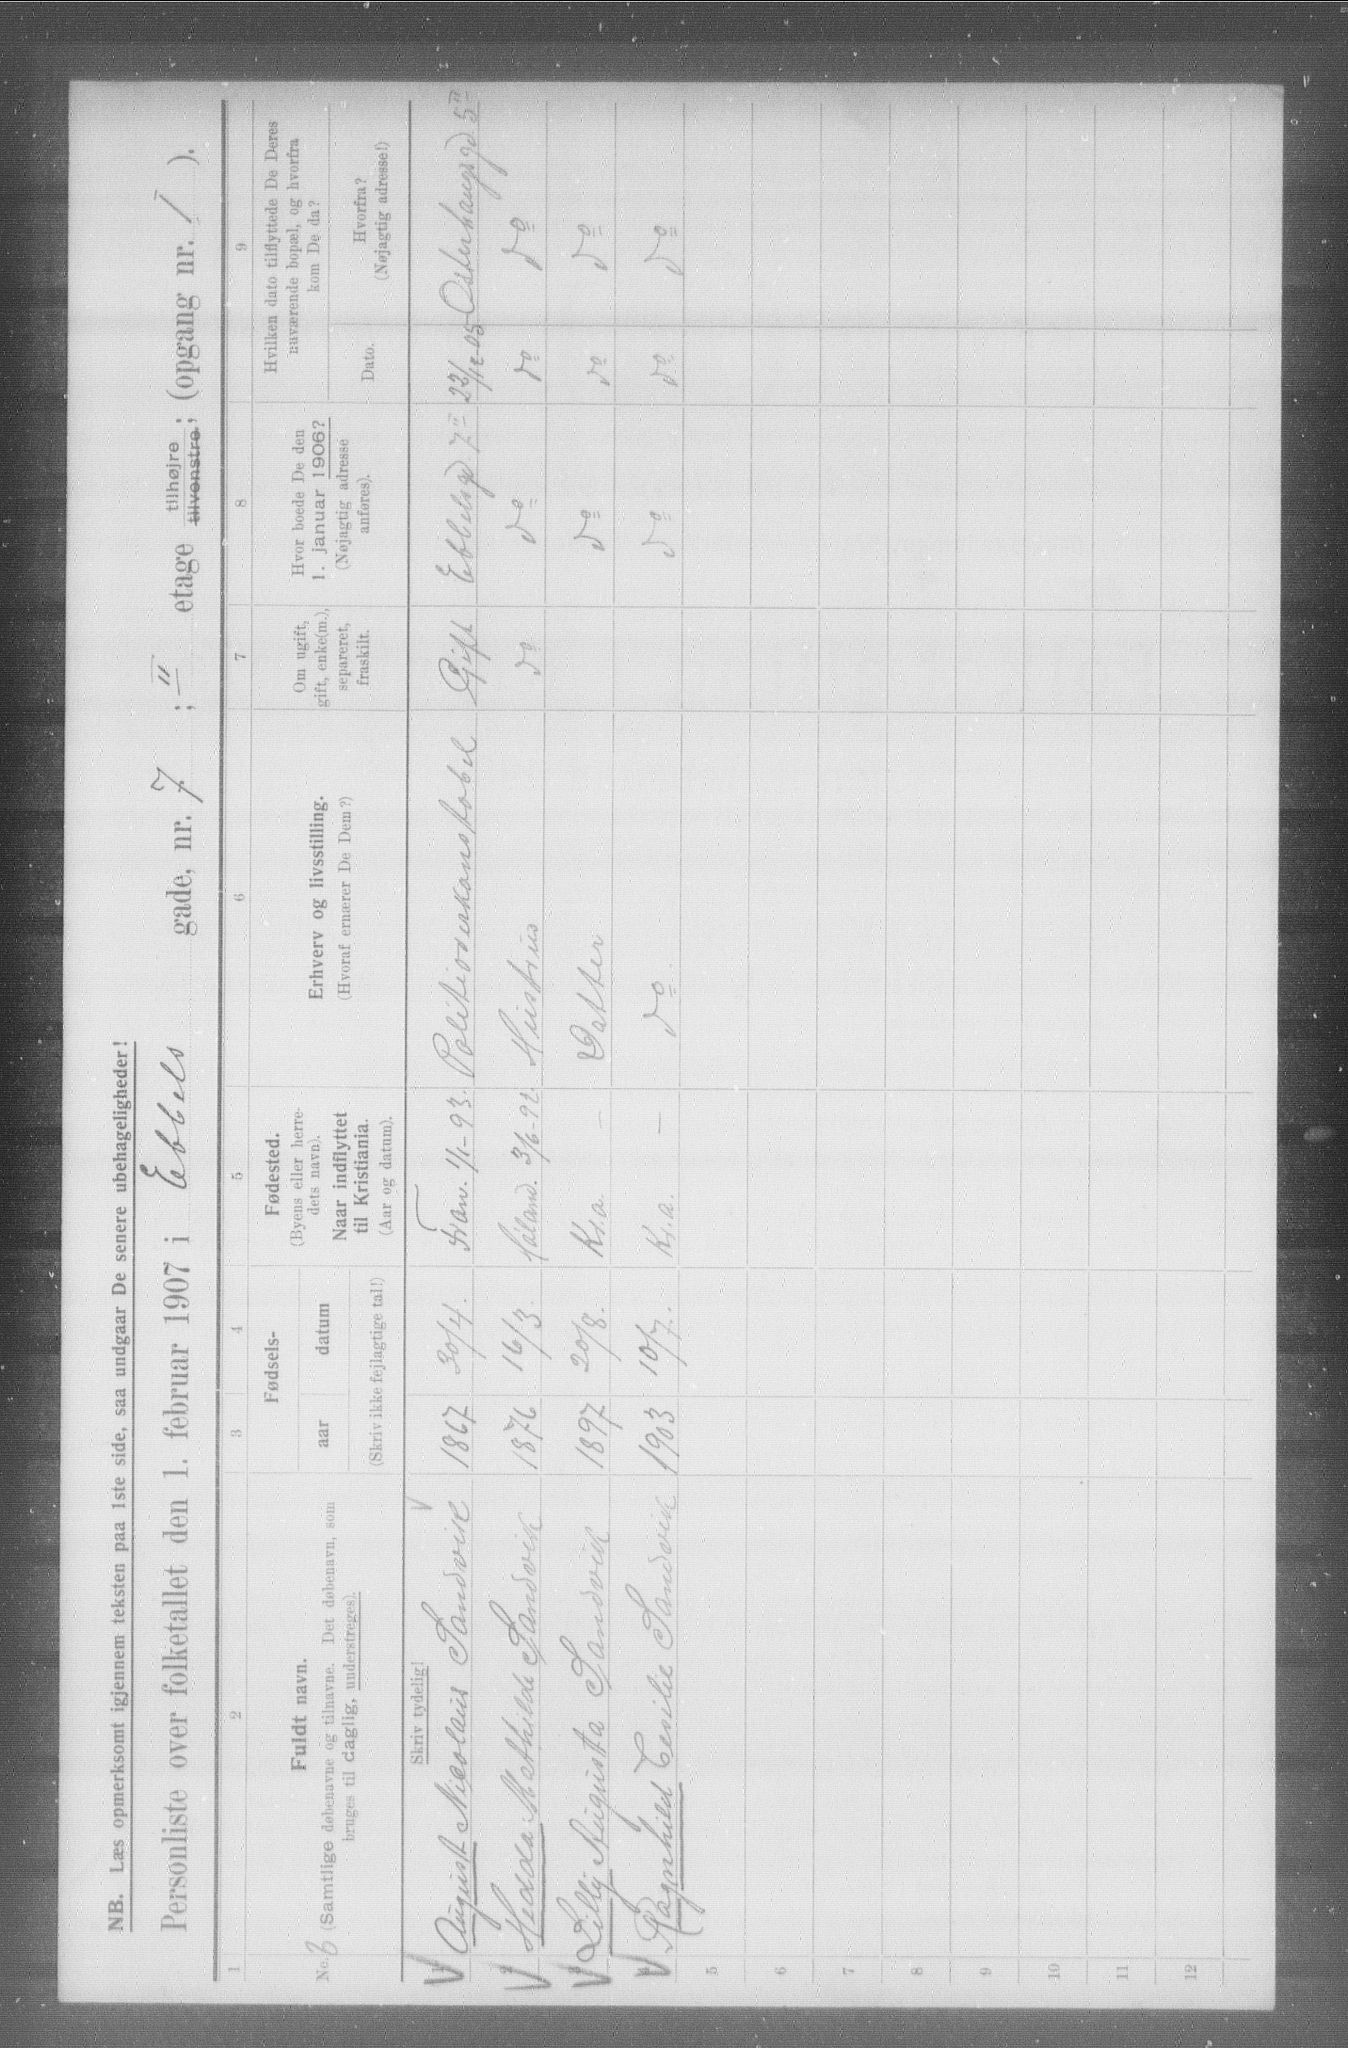 NB. Læs opmerksomt igjennem teksten paa 1ste side, saa undgaar De senere ubehageligheder!
Personliste over folketallet den 1. februar 1907 i Ebbels gade, nr. 7 ; II etage tilhøjre tilvenstre; (opgang nr. 1 ).
1 2 3 4 5 6 7 8 9
No. 3
Fuldt navn.
(Samtlige døbenavne og tilnavne. Det døbenavn, som
bruges til daglig, understreges).
Fødsels-
aar datum
(Skriv ikke fejlagtige tal!)
Fødested.
(Byens eller herre-
dets navn).
Naar indflyttet
til Kristiania.
(Aar og datum).
Erhverv og livsstilling.
(Hvoraf ernærer De Dem?)
Om ugift,
gift, enke(m.),
separeret,
fraskilt.
Hvor boede De den
1. januar 1906?
(Nøjagtig adresse
anføres).
Hvilken dato tilflyttede De Deres
nuværende bopæl, og hvorfra
kom De da?
Dato.
Hvorfra?
(Nøjagtig adresse!)
Skriv tydelig!
1 August Nicolaus Sandvik 1867 30/4. 1/1-93. Politioverkonstabel Gift Ebbelsgd 7 II 23/12-05 Østerhausgd 5 II
2 Hedda Mathilde Sandvik 1876 16/3. 3/6-92. Hustru do do do do
3 Lilly Augusta Sandvik 1897 20/8. Kr.a. — Datter do do do
4 Ragnhild Cesilie Sandvik 1903 10/7. Kr.a. — do do do do
5
6
7
8
9
10
11
12